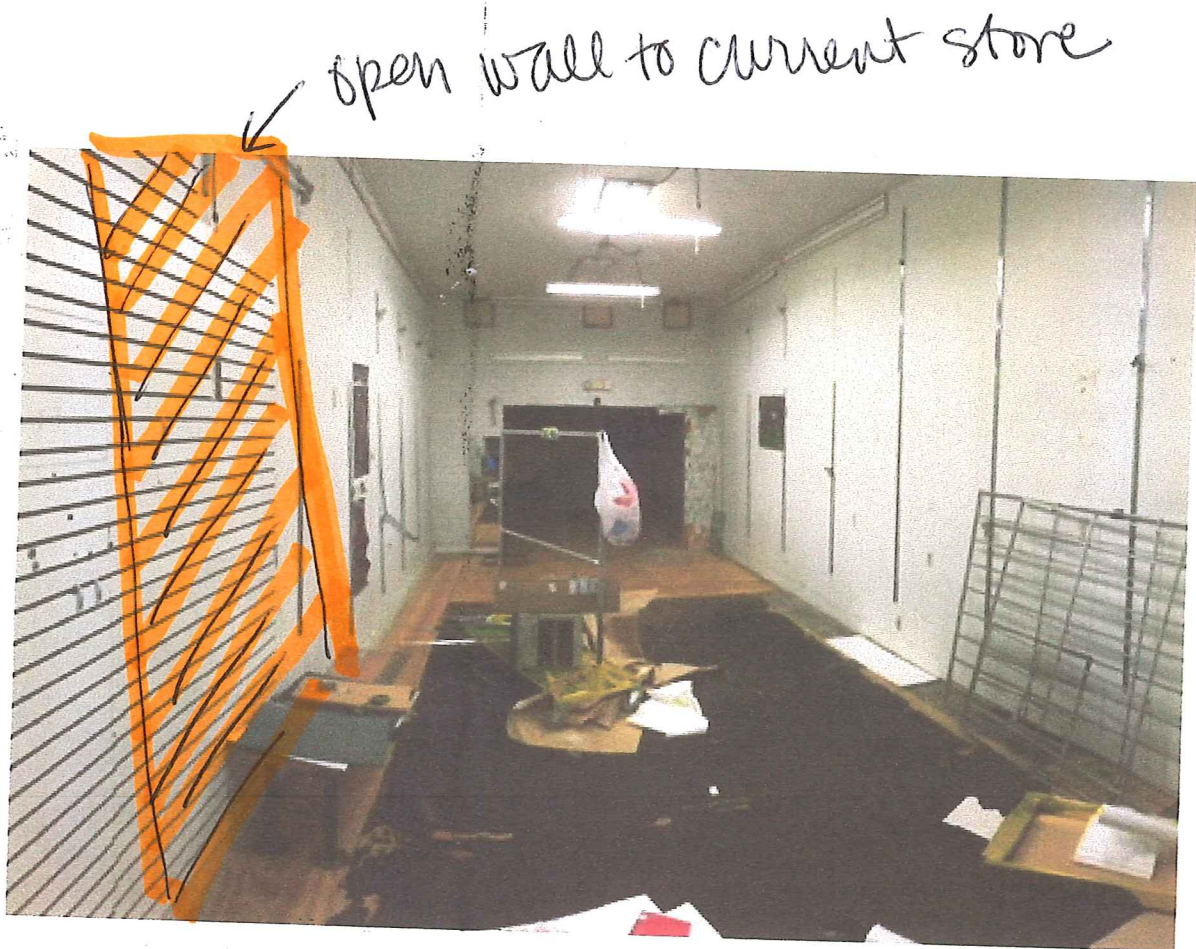 open wall to current store